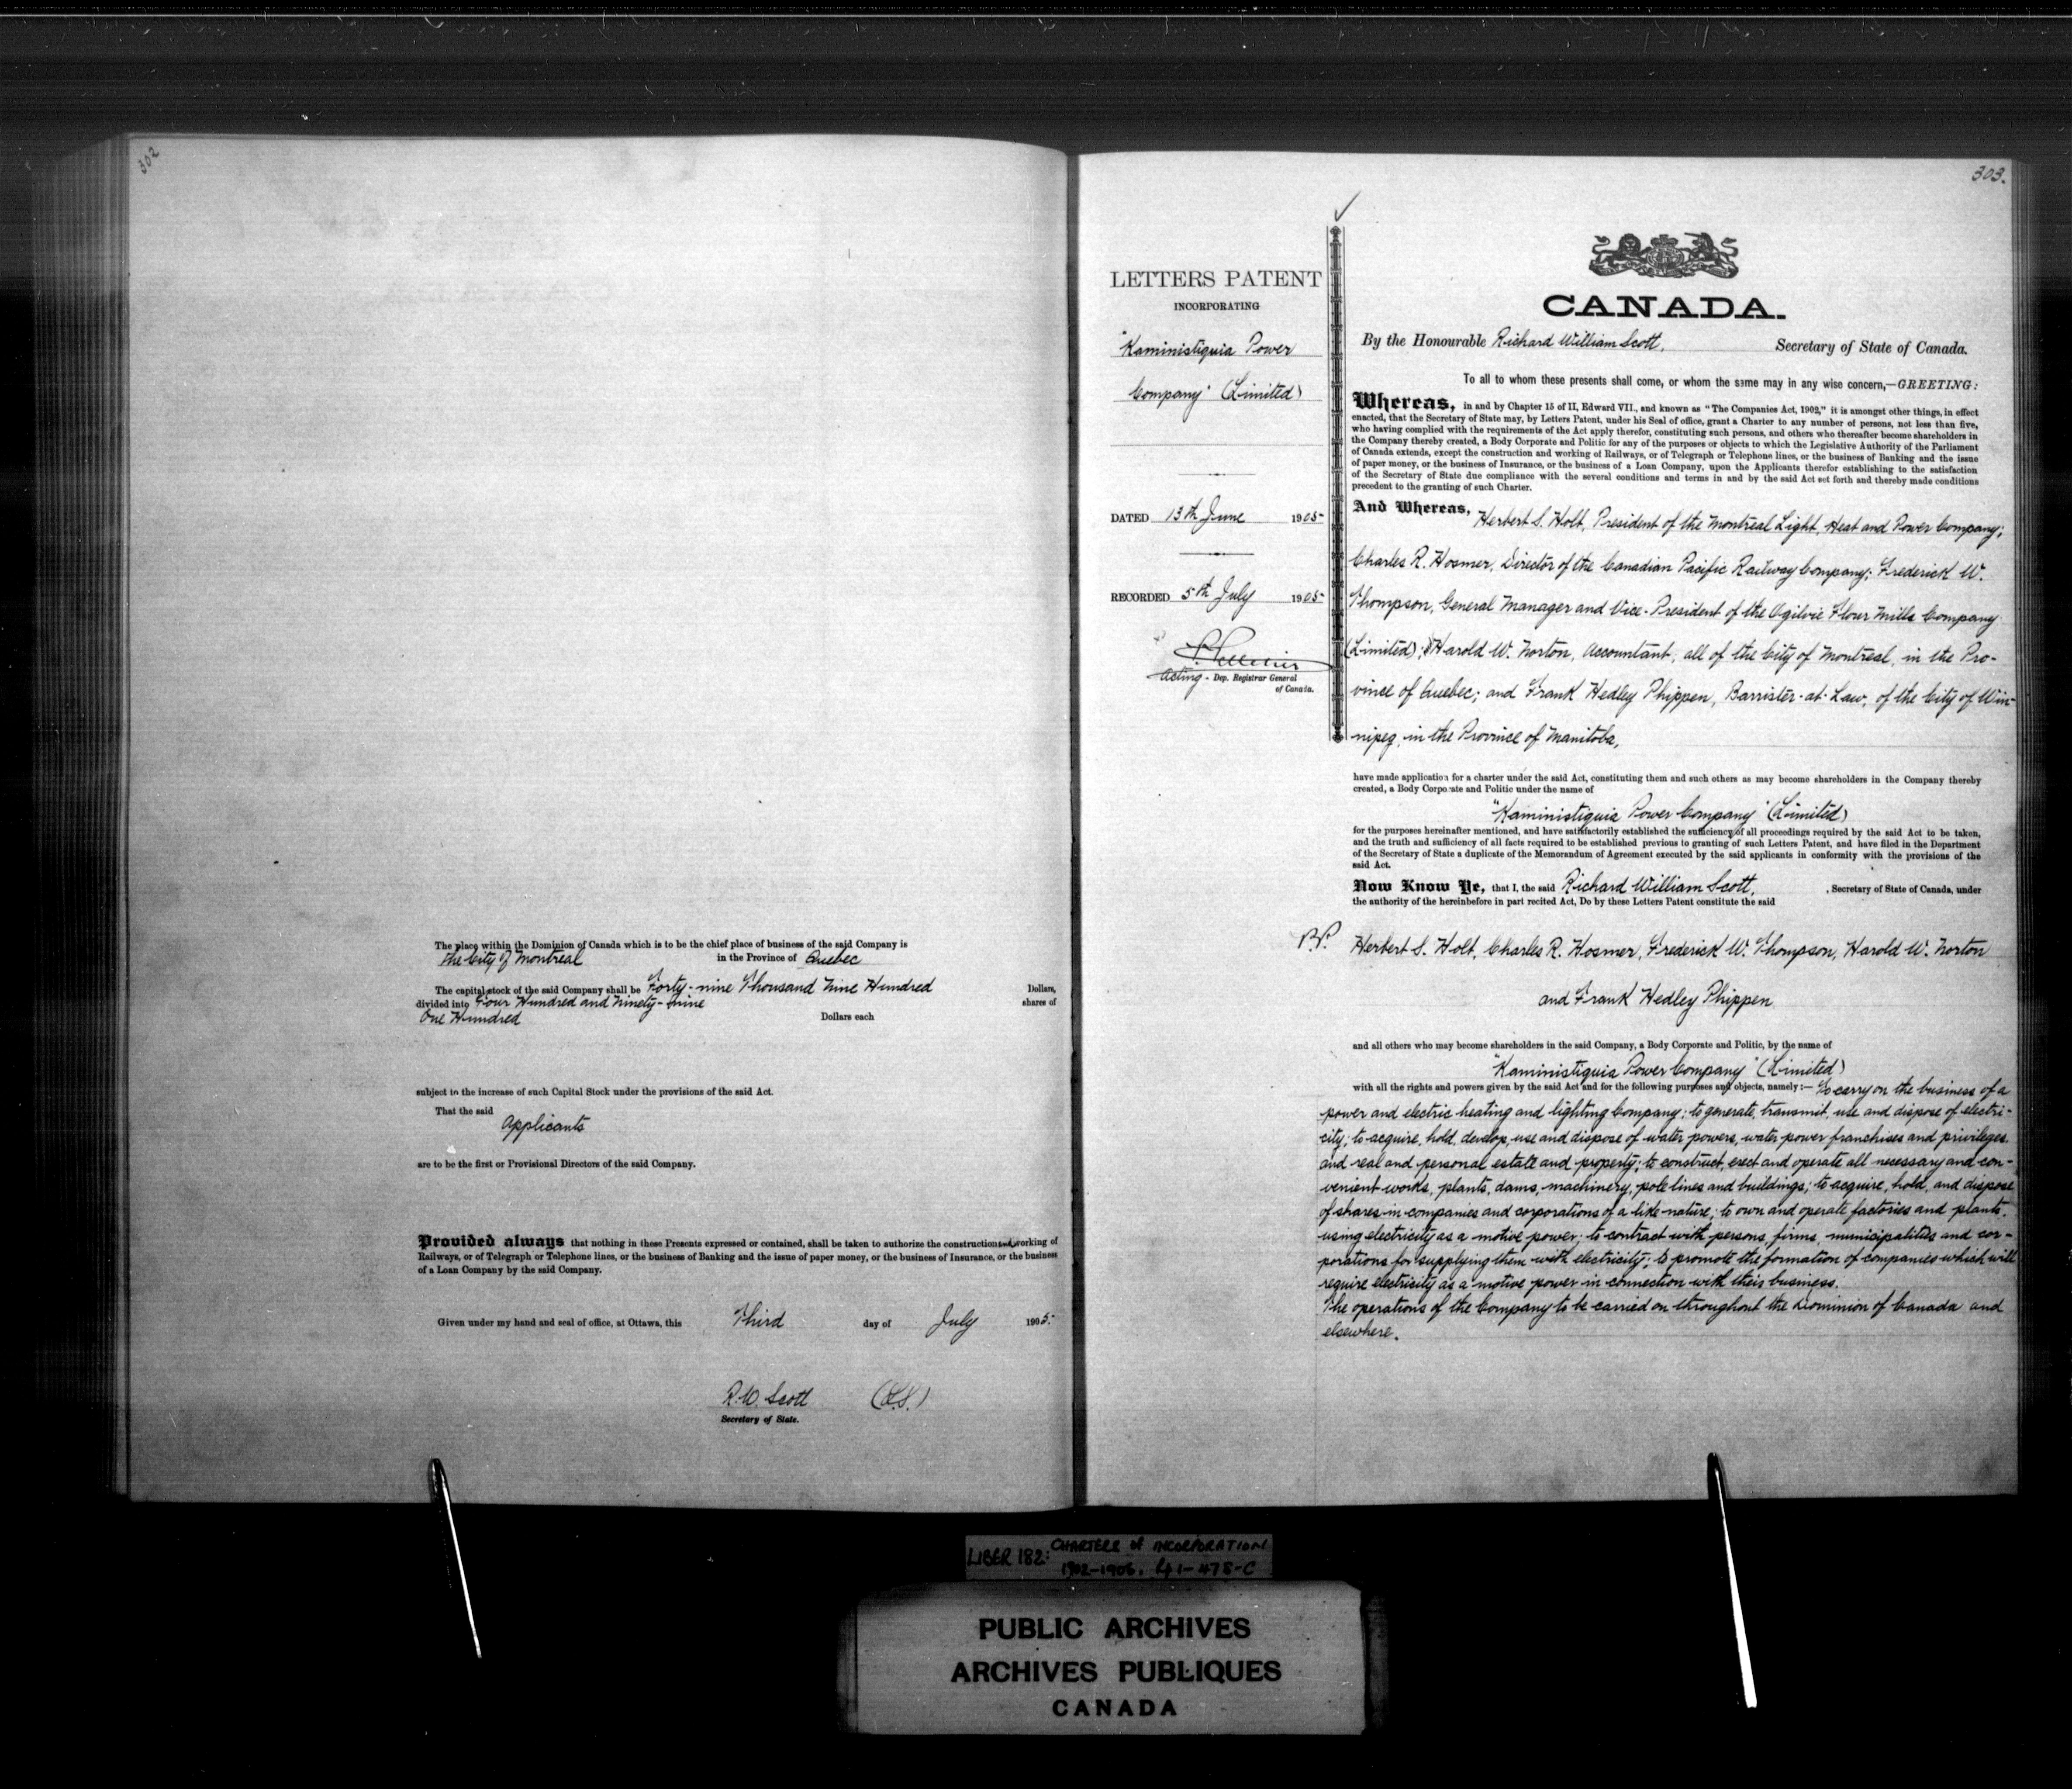 302
The place within the Dominion of Canada which is to be the chief place of business of the said Company is
The City of Montreal in the Province of Quebec
The capital stock of the said Company shall be Forty-nine Thousand Nine Hundred Dollars,
divided into Four Hundred and Ninety-nine shares of
One Hundred Dollars each
subject to the increase of such Capital Stock under the provisions of the said Act.
That the said
Applicants
are to be the first or Provisional Directors of the said Company.
Provided always that nothing in these Presents expressed or contained, shall be taken to authorize the construction and working of
Railways, or of Telegraph or Telephone lines, or the business of Banking and the issue of paper money, or the business of Insurance, or the business
of a Loan Company by the said Company.
Given under my hand and seal of office, at Ottawa, this Third day of July 1905.
R.W. Scott (L.S.)
Secretary of State.
303.
LETTERS PATENT
INCORPORATING
"Kaministiquia Power
Company" (Limited)
DATED 13th June 1905
RECORDED 5th July 1905
P. Pelletier
Acting - Dep. Registrar General
of Canada.
CANADA.
By the Honourable Richard William Scott, Secretary of State of Canada.
To all to whom these presents shall come, or whom the same may in any wise concern,—GREETING:
Whereas, in and by Chapter 15 of II, Edward VII., and known as "The Companies Act, 1902," it is amongst other things, in effect
enacted, that the Secretary of State may, by Letters Patent, under his Seal of office, grant a Charter to any number of persons, not less than five,
who having complied with the requirements of the Act apply therefor, constituting such persons, and others who thereafter become shareholders in
the Company thereby created, a Body Corporate and Politic for any of the purposes or objects to which the Legislative Authority of the Parliament
of Canada extends, except the construction and working of Railways, or of Telegraph or Telephone lines, or the business of Banking and the issue
of paper money, or the business of Insurance, or the business of a Loan Company, upon the Applicants therefor establishing to the satisfaction
of the Secretary of State due compliance with the several conditions and terms in and by the said Act set forth and thereby made conditions
precedent to the granting of such Charter.
And Whereas, Herbert S. Holt, President of the Montreal Light, Heat and Power Company;
Charles R. Hosmer, Director of the Canadian Pacific Railway Company; Frederick W.
Thompson, General Manager and Vice-President of the Ogilvie Flour Mills Company
(Limited); Harold W. Norton, Accountant, all of the City of Montreal, in the Pro-
vince of Quebec; and Frank Hedley Phippen, Barrister-at-Law, of the City of Win-
nipeg, in the Province of Manitoba,
have made application for a charter under the said Act, constituting them and such others as may become shareholders in the Company thereby
created, a Body Corporate and Politic under the name of
"Kaministiquia Power Company" (Limited)
for the purposes hereinafter mentioned, and have satisfactorily established the sufficiency of all proceedings required by the said Act to be taken,
and the truth and sufficiency of all facts required to be established previous to granting of such Letters Patent, and have filed in the Department
of the Secretary of State a duplicate of the Memorandum of Agreement executed by the said applicants in conformity with the provisions of the
said Act.
Now Know Ye, that I, the said Richard William Scott, , Secretary of State of Canada, under
the authority of the hereinbefore in part recited Act, Do by these Letters Patent constitute the said
P.P. Herbert S. Holt, Charles R. Hosmer, Frederick W. Thompson, Harold W. Norton
and Frank Hedley Phippen
and all others who may become shareholders in the said Company, a Body Corporate and Politic, by the name of
"Kaministiquia Power Company" (Limited)
with all the rights and powers given by the said Act and for the following purposes and objects, namely:— To carry on the business of a
power and electric heating and lighting Company; to generate, transmit, use and dispose of electri-
city; to acquire, hold, develop, use and dispose of water powers, water power franchises and privileges
and real and personal estate and property; to construct, erect and operate all necessary and con-
venient works, plants, dams, machinery, pole lines and buildings; to acquire, hold, and dispose
of shares in companies and corporations of a like nature; to own and operate factories and plants,
using electricity as a motive power; to contract with persons, firms, municipalities and cor-
porations for supplying them with electricity; to promote the formation of companies which will
require electricity as a motive power in connection with their business.
The operations of the Company to be carried on throughout the Dominion of Canada and
elsewhere.
LIBER 182: CHARTERS of INCORPORATION
1902-1906.
PUBLIC ARCHIVES
ARCHIVES PUBLIQUES
CANADA